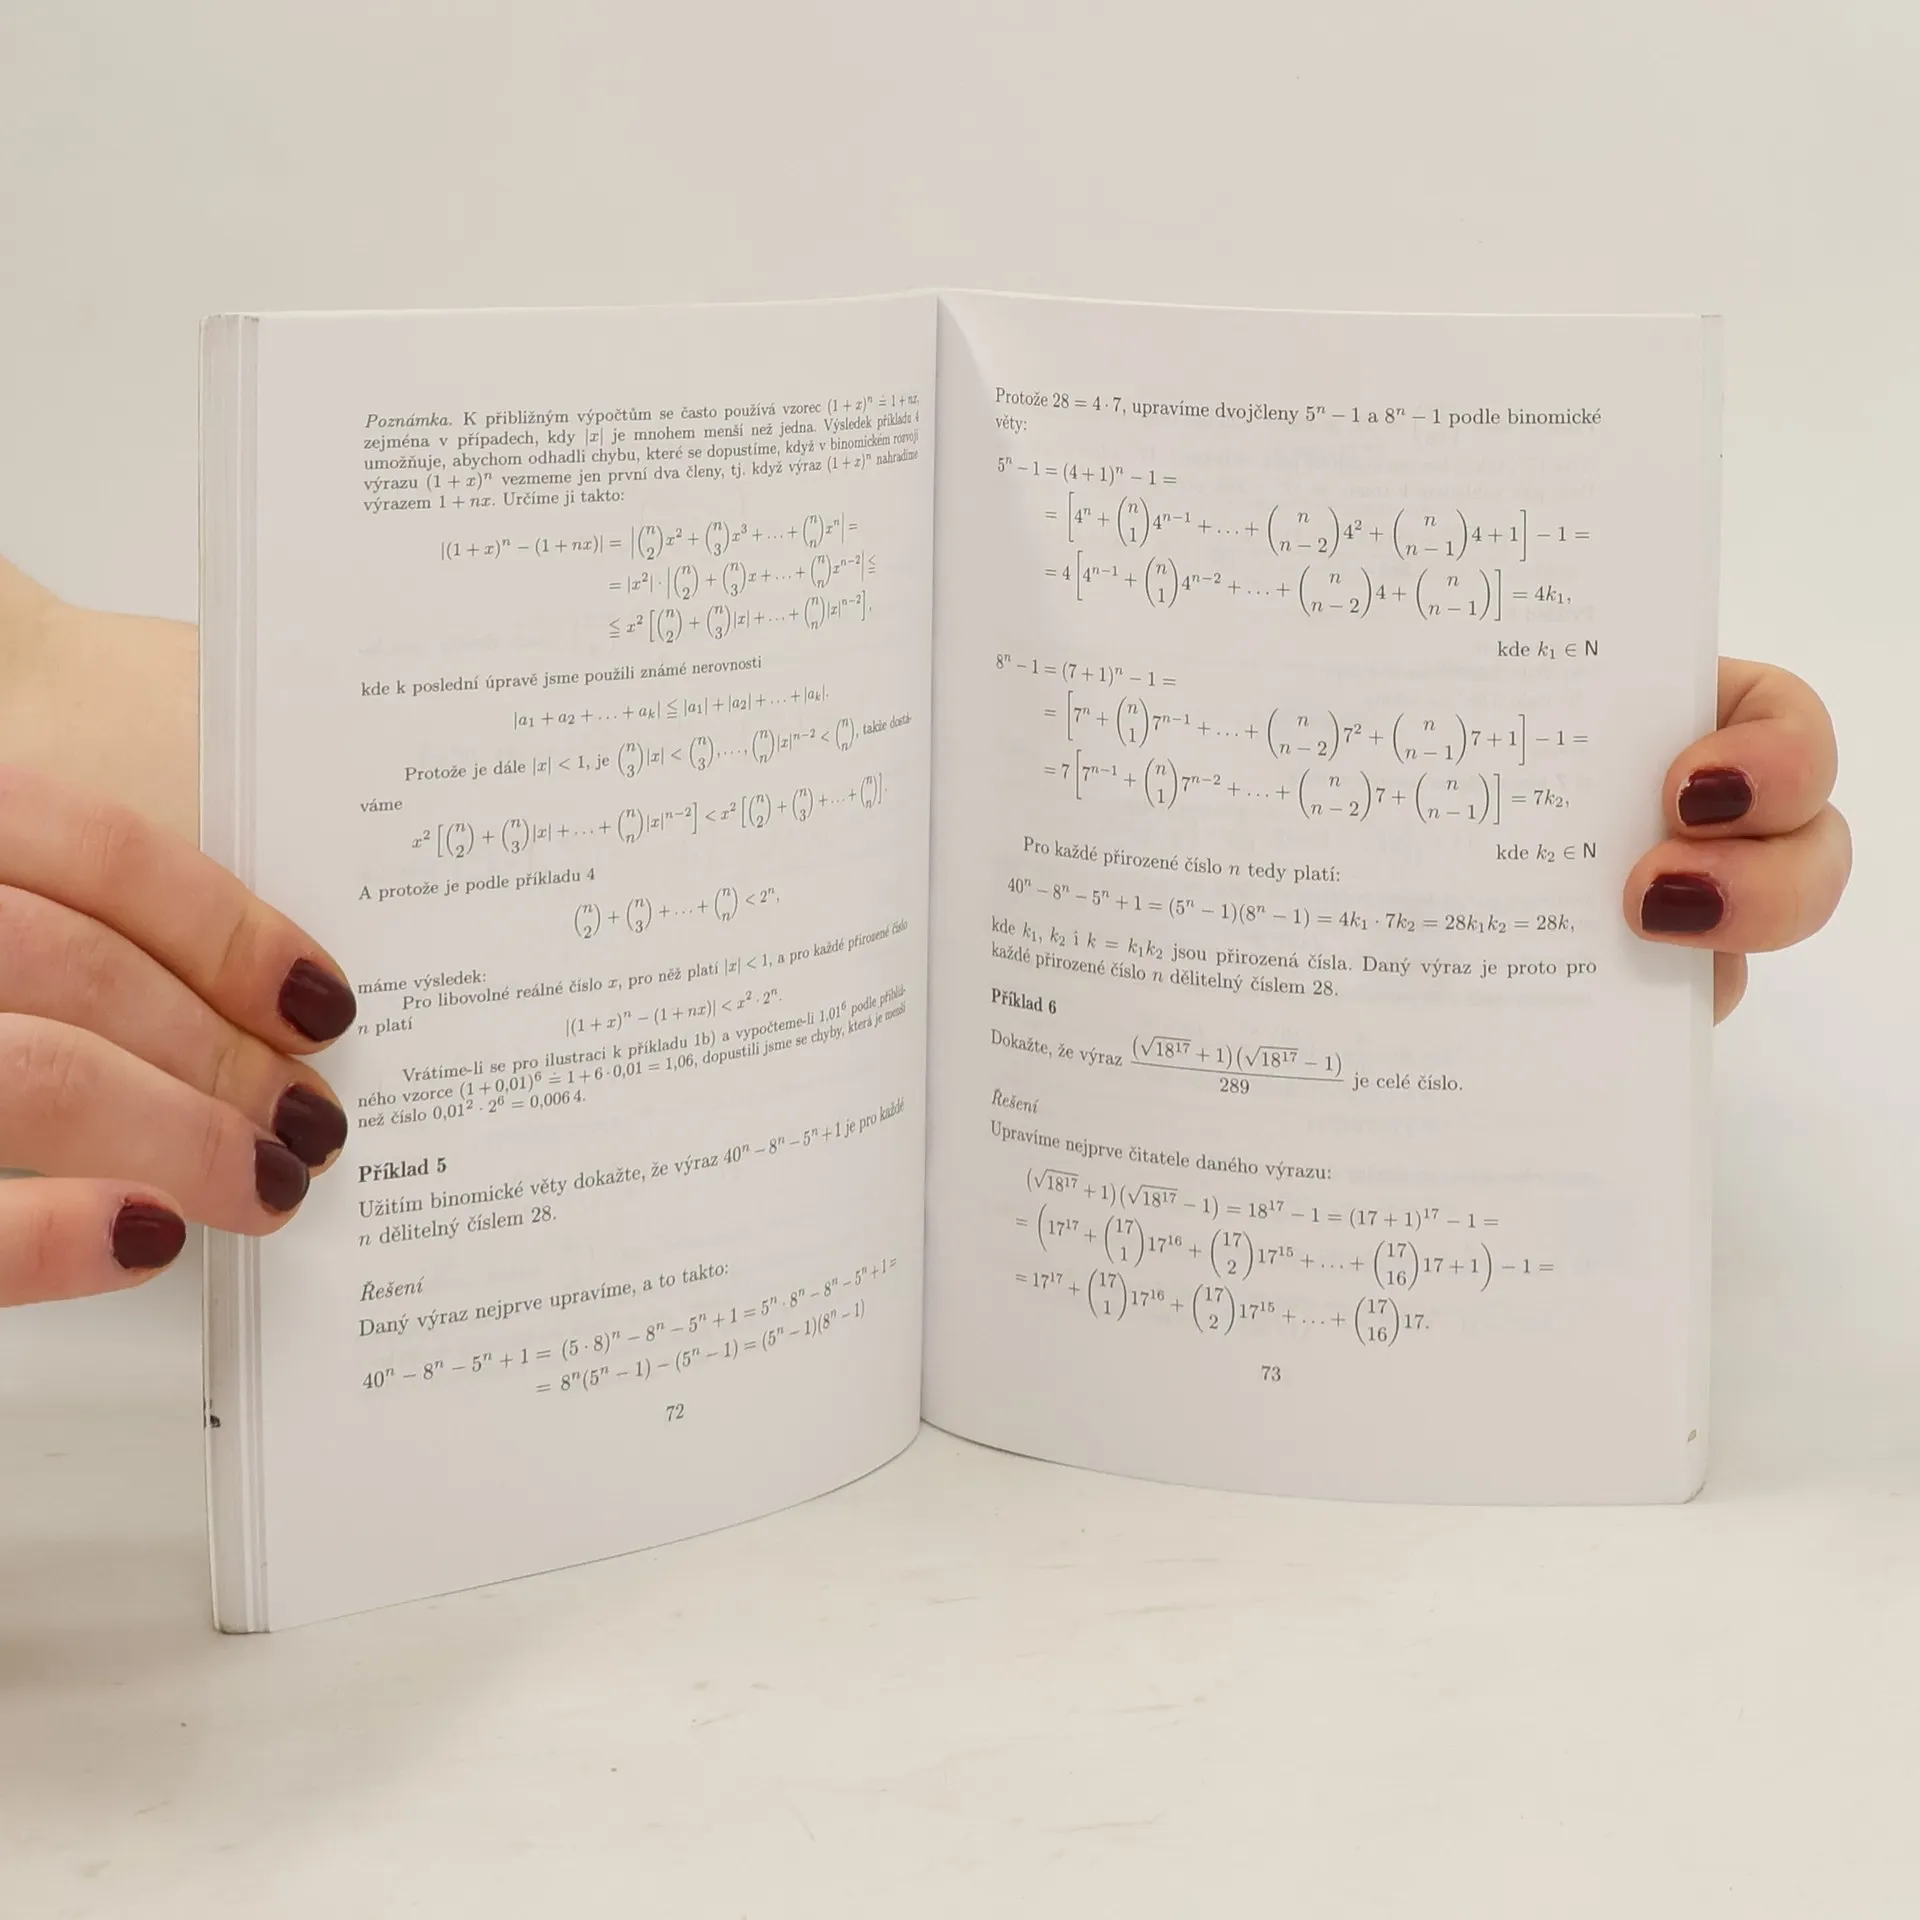 Poznámka. K přibližným výpočtům se často používá vzorec (1 + x)ⁿ ≐ 1 + nx,
zejména v případech, kdy |x| je mnohem menší než jedna. Výsledek příkladu 4
umožňuje, abychom odhadli chybu, které se dopustíme, když v binomickém rozvoji
výrazu (1 + x)ⁿ vezmeme jen první dva členy, tj. když výraz (1 + x)ⁿ nahradíme
výrazem 1 + nx. Určíme ji takto:
|(1 + x)ⁿ − (1 + nx)| = |(n 2)x² + (n 3)x³ + … + (n n)xⁿ| =
= |x²| · |(n 2) + (n 3)x + … + (n n)xⁿ⁻²| ≦
≦ x² [(n 2) + (n 3)|x| + … + (n n)|x|ⁿ⁻²],
kde k poslední úpravě jsme použili známé nerovnosti
|a₁ + a₂ + … + aₖ| ≦ |a₁| + |a₂| + … + |aₖ|.
Protože je dále |x| < 1, je (n 3)|x| < (n 3), …, (n n)|x|ⁿ⁻² < (n n), takže dostá-
váme
x² [(n 2) + (n 3)|x| + … + (n n)|x|ⁿ⁻²] < x² [(n 2) + (n 3) + … + (n n)].
A protože je podle příkladu 4
(n 2) + (n 3) + … + (n n) < 2ⁿ,
máme výsledek:
Pro libovolné reálné číslo x, pro něž platí |x| < 1, a pro každé přirozené číslo
n platí
|(1 + x)ⁿ − (1 + nx)| < x² · 2ⁿ.
Vrátíme-li se pro ilustraci k příkladu 1b) a vypočteme-li 1,01⁶ podle přibliž-
ného vzorce (1 + 0,01)⁶ ≐ 1 + 6 · 0,01 = 1,06, dopustili jsme se chyby, která je menší
než číslo 0,01² · 2⁶ = 0,006 4.
Příklad 5
Užitím binomické věty dokažte, že výraz 40ⁿ − 8ⁿ − 5ⁿ + 1 je pro každé
n dělitelný číslem 28.
Řešení
Daný výraz nejprve upravíme, a to takto:
40ⁿ − 8ⁿ − 5ⁿ + 1 = (5 · 8)ⁿ − 8ⁿ − 5ⁿ + 1 = 5ⁿ · 8ⁿ − 8ⁿ − 5ⁿ + 1 =
= 8ⁿ(5ⁿ − 1) − (5ⁿ − 1) = (5ⁿ − 1)(8ⁿ − 1)
72
Protože 28 = 4 · 7, upravíme dvojčleny 5ⁿ − 1 a 8ⁿ − 1 podle binomické
věty:
5ⁿ − 1 = (4 + 1)ⁿ − 1 =
= [4ⁿ + (n 1)4ⁿ⁻¹ + … + (n n − 2)4² + (n n − 1)4 + 1] − 1 =
= 4 [4ⁿ⁻¹ + (n 1)4ⁿ⁻² + … + (n n − 2)4 + (n n − 1)] = 4k₁,
kde k₁ ∈ N
8ⁿ − 1 = (7 + 1)ⁿ − 1 =
= [7ⁿ + (n 1)7ⁿ⁻¹ + … + (n n − 2)7² + (n n − 1)7 + 1] − 1 =
= 7 [7ⁿ⁻¹ + (n 1)7ⁿ⁻² + … + (n n − 2)7 + (n n − 1)] = 7k₂,
kde k₂ ∈ N
Pro každé přirozené číslo n tedy platí:
40ⁿ − 8ⁿ − 5ⁿ + 1 = (5ⁿ − 1)(8ⁿ − 1) = 4k₁ · 7k₂ = 28k₁k₂ = 28k,
kde k₁, k₂ i k = k₁k₂ jsou přirozená čísla. Daný výraz je proto pro
každé přirozené číslo n dělitelný číslem 28.
Příklad 6
Dokažte, že výraz (√18¹⁷ + 1)(√18¹⁷ − 1) / 289 je celé číslo.
Řešení
Upravíme nejprve čitatele daného výrazu:
(√18¹⁷ + 1)(√18¹⁷ − 1) = 18¹⁷ − 1 = (17 + 1)¹⁷ − 1 =
= (17¹⁷ + (17 1)17¹⁶ + (17 2)17¹⁵ + … + (17 16)17 + 1) − 1 =
= 17¹⁷ + (17 1)17¹⁶ + (17 2)17¹⁵ + … + (17 16)17.
73